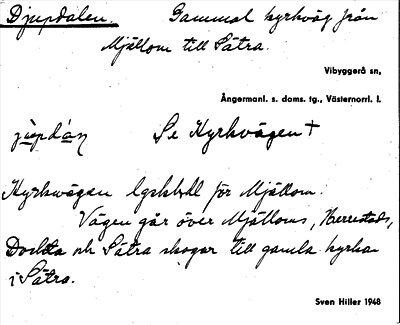 Djupdalen. Gammal kyrkväg från
Mjällom till Sätra.
Vibyggerå sn,
Ångermanl. s. doms. tg., Västernorrl. l.
Se Kyrkvägen +
Kyrkvägen för Mjällom.
Vägen går över Mjälloms, Herrestads,
Docksta och Sätra skogar till gamla kyrkan
i Sätra.
Sven Hiller 1948